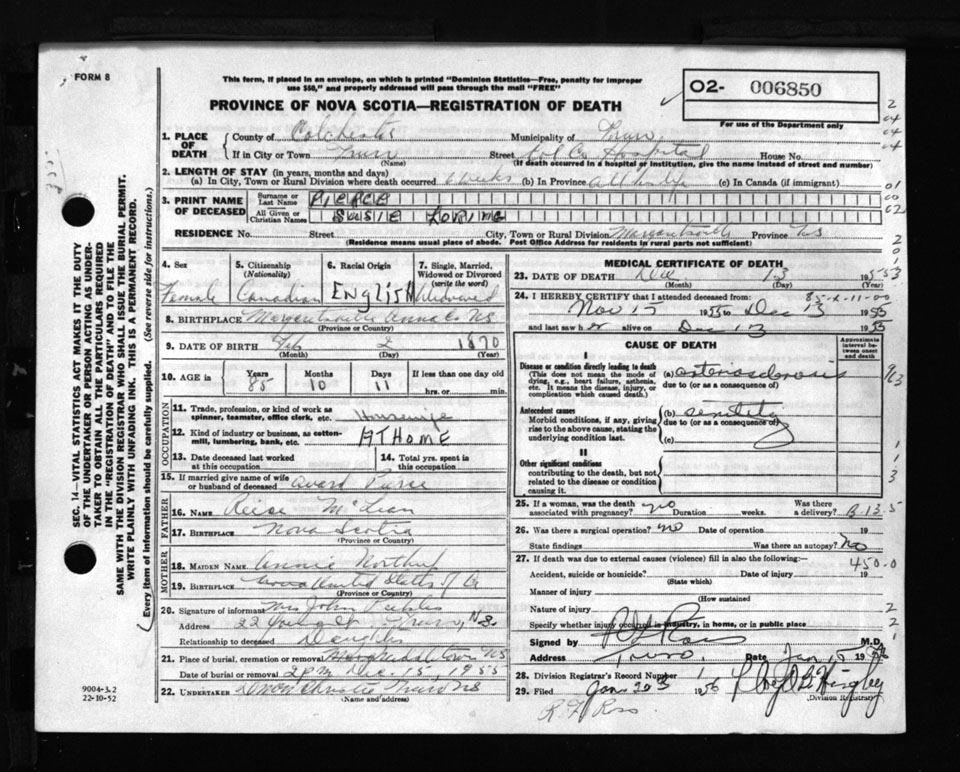 FORM 8
This form, if placed in an envelope, on which is printed "Dominion Statistics—Free, penalty for improper
use $50," and properly addressed will pass through the mail "FREE"
O2- 006850
For use of the Department only
PROVINCE OF NOVA SCOTIA—REGISTRATION OF DEATH
SEC. 14—VITAL STATISTICS ACT MAKES IT THE DUTY
OF THE UNDERTAKER OR PERSON ACTING AS UNDER-
TAKER TO OBTAIN ALL THE PARTICULARS REQUIRED
IN THE "REGISTRATION OF DEATH" AND TO FILE THE
SAME WITH THE DIVISION REGISTRAR WHO SHALL ISSUE THE BURIAL PERMIT.
WRITE PLAINLY WITH UNFADING INK. THIS IS A PERMANENT RECORD.
Every item of information should be carefully supplied. (See reverse side for instructions.)
1. PLACE OF DEATH County of Colchester Municipality of Truro
If in City or Town Truro Street Col Co Hospital House No.
(Name) (If death occurred in a hospital or institution, give the name instead of street and number)
2. LENGTH OF STAY (in years, months and days)
(a) In City, Town or Rural Division where death occurred 6 weeks (b) In Province All her life (c) In Canada (if immigrant)
3. PRINT NAME OF DECEASED Surname or Last Name PIERCE
All Given or Christian Names SUSIE
RESIDENCE No. Street City, Town or Rural Division Margaretsville Province N S
(Residence means usual place of abode. Post Office Address for residents in rural parts not sufficient)
4. Sex Female
5. Citizenship (Nationality) Canadian
6. Racial Origin ENGLISH
7. Single, Married, Widowed or Divorced (write the word) Widowed
8. BIRTHPLACE Margaretsville Anna Co NS
(Province or Country)
9. DATE OF BIRTH Feb 2 1870
(Month) (Day) (Year)
10. AGE in Years 85 Months 10 Days 11 If less than one day old hrs. or min.
OCCUPATION
11. Trade, profession, or kind of work as spinner, teamster, office clerk, etc. Housewife
12. Kind of industry or business, as cotton-mill, lumbering, bank, etc. AT HOME
13. Date deceased last worked at this occupation
14. Total yrs. spent in this occupation
15. If married give name of wife or husband of deceased Avard Pierce
FATHER
16. Name McLean
17. BIRTHPLACE Nova Scotia
(Province or Country)
MOTHER
18. MAIDEN NAME Annie
19. BIRTHPLACE United States of
(Province or Country)
20. Signature of informant Mrs John
Address 22 Truro, N.S.
Relationship to deceased Daughter
21. Place of burial, cremation or removal N S
Date of burial or removal 2 PM Dec. 15, 1955
22. UNDERTAKER Truro NS
(Name and address)
9004-3.2
22-10-52
MEDICAL CERTIFICATE OF DEATH
23. DATE OF DEATH Dec 13 1955
(Month) (Day) (Year)
24. I HEREBY CERTIFY that I attended deceased from:
Nov 15 1955 to Dec 13 1955
and last saw her alive on Dec 13 1955
CAUSE OF DEATH
Approximate interval between onset and death
I
Disease or condition directly leading to death
(This does not mean the mode of dying, e.g., heart failure, asthenia, etc. It means the disease, injury, or complication which caused death.)
(a) arteriosclerosis
due to (or as a consequence of)
Antecedent causes
Morbid conditions, if any, giving rise to the above cause, stating the underlying condition last.
(b) senility
due to (or as a consequence of)
(c)
II
Other significant conditions
contributing to the death, but not related to the disease or condition causing it.
25. If a woman, was the death associated with pregnancy? no Duration weeks. Was there a delivery?
26. Was there a surgical operation? no Date of operation 19
State findings Was there an autopsy? No
27. If death was due to external causes (violence) fill in also the following:—
450-0
Accident, suicide or homicide? Date of injury 19
(State which)
Manner of injury
(How sustained
Nature of injury
Specify whether injury occurred in industry, in home, or in public place
Signed by Ross M.D.
Address Truro, Date Jan 1956
28. Division Registrar's Record Number 1
29. Filed Jan 1956
Division Registrar
R F Ross